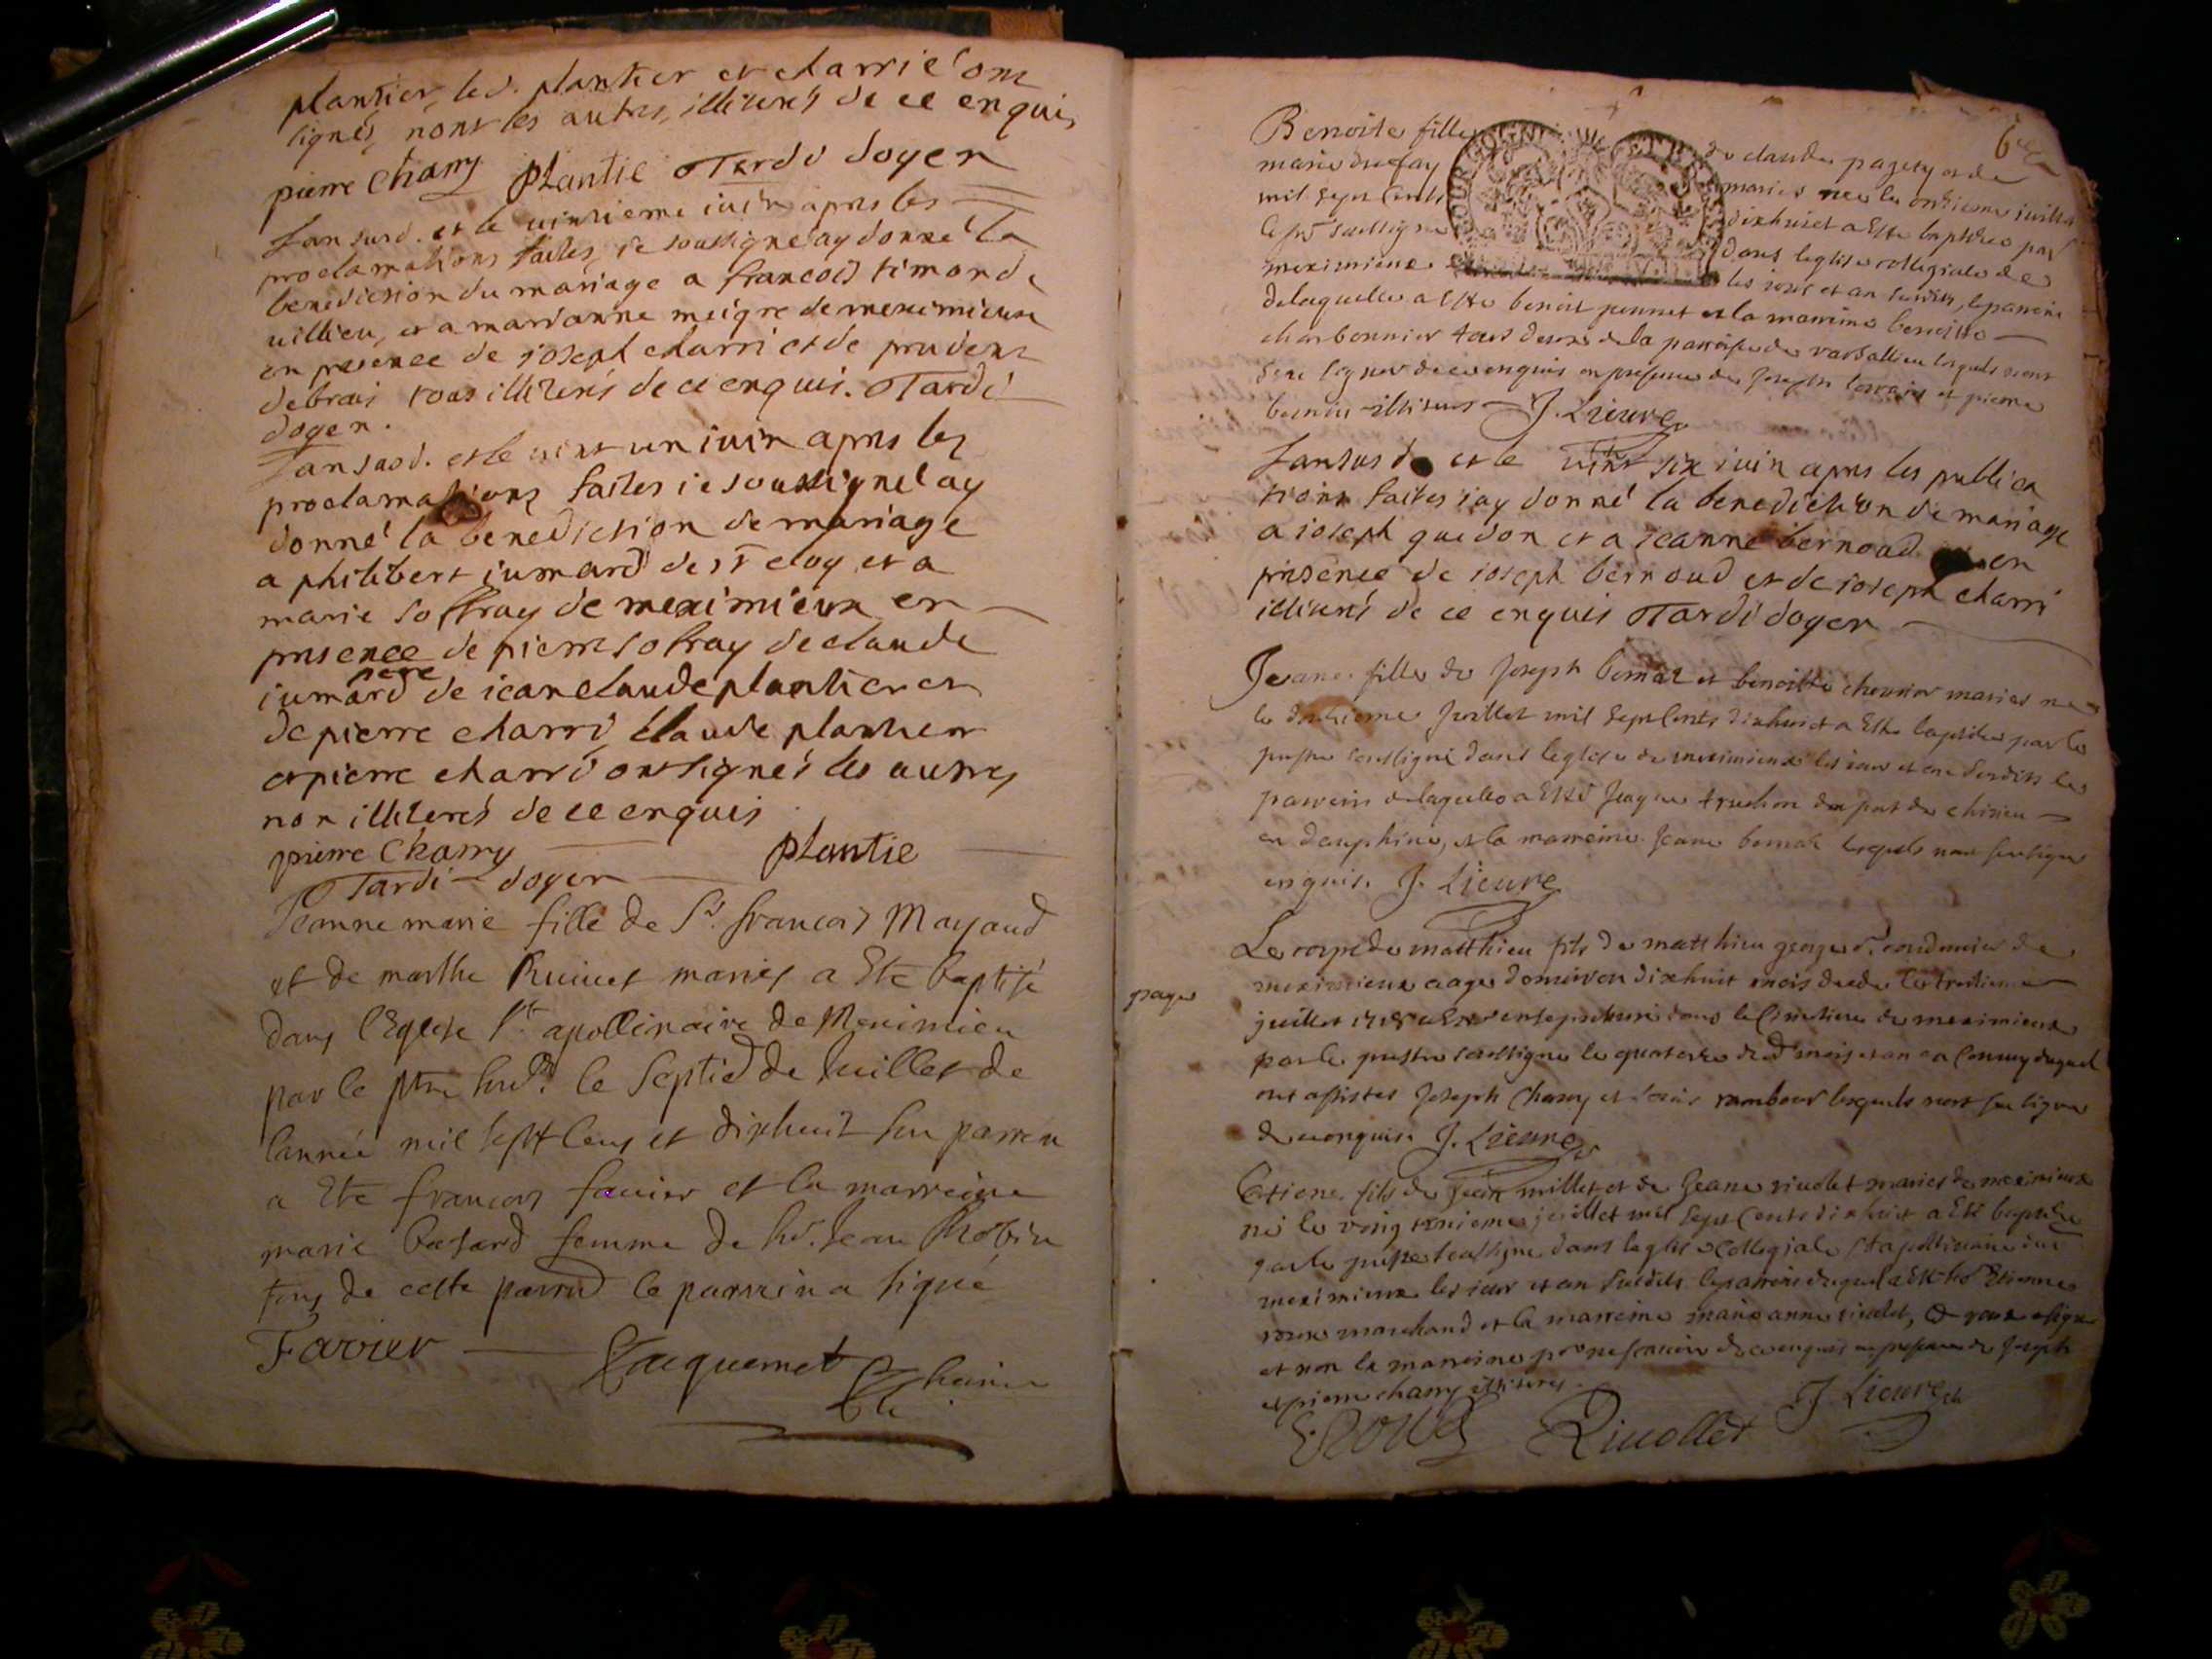 plantier, led. plantier et charri é ont
signés, nont les autres, illiterés de ce enquis
pierre Charry plantie Tardi doyen
Lan susd. et le vintieme iuin apres les
proclamations faites, je soussigné ay donné la
benediction du mariage a francois timon de
villieu, et a marianne meigre de meximieux
en presence de joseph charri et de prudent
debrai tous illiterés de ce enquis. Tardi
doyen.
Lan susd. et le vint un iuin apres les
proclamations faites ie soussigné ay
donné la benediction de mariage
a philibert jumard de st eloy et a
marie soffray de meximieux en
presence de pierre sofray de claude
pere
iumard de iean claude plantier et
de pierre charri, claude plantier
et pierre charri ont signés les autres
non illiterés de ce enquis
pierre Charry plantie
Tardi doyen
Jeanne marie fille de Sr. francois Mayaud
et de marthe mariés a Eté baptisé
dans l'Eglise St. apollinaire de Meximieu
par le ptre le Septie de Juillet de
lannée mil sept cens et dixhuit son parrein
a Eté francois favier et la marreine
marie femme de Jean Robin
tous de cette parroisse le parrein a signé
Favier Jacquemet
6
Benoite fille de claude et de
marie dufay mariés nee le onsieme iuillet
mil sept cents dixhuict a Este baptisée par
le soussigné dans leglise collegiale de
meximieux les iour et an susdits, le parrein
delaquelle a Esté benoit ponnet et la marreine benoitte
charbonnier tous deux de la parroisse de lesquels nont
sceu signer de ce enquis en presence de Joseph et pierre
illiterés J. Lieure
Lan susd. et le vint six iuin apres les publica
tions faites iay donné la benediction de mariage
a ioseph guedon et a ieanne bernoud en
presence de ioseph bernoud et de ioseph charri
illiterés de ce enquis Tardi doyen
Jeane fille de Joseph bernaz et benoitte mariés nee
le Juillet mil sept cents dixhuict a Esté baptisée par le
prestre soussigné dans leglise de meximieux les iour et an susdits le
parrein delaquelle a Esté Jacque truchon du port de
en dauphiné, et la marreine Jeane bernaz lesquels nont sceu signer
enquis. J. Lieure
Le corps de matthieu fils de matthieu george cordonnier de
meximieux aagé domviron dixhuit mois le
juillet 1718 a Esté ensepveluri dans le Cimetiere de meximieux
par le prestre soussigné le quatorze dud. mois et an au Convoy duquel
ont assistés Joseph Charry et rambour lesquels nont sceu signer
de ce enquis. J. Lieure
Etiene fils de Jean millet et de Jeane rivolet mariés de meximieux
né le juillet mil sept cents dixhuit a Eté baptisé
par le prestre soussigné dans leglise Collegiale St apollinaire de
meximieux les iour et an susdits le parrein duquel a Esté Sr Etienne
roux marchand et la marreine marie anne rivolet, roux a signé
et non la marreine pour ne scavoir de ce enquis en presence de Joseph
et pierre charry illiterés.
E. roux Rivollet J. Lieure